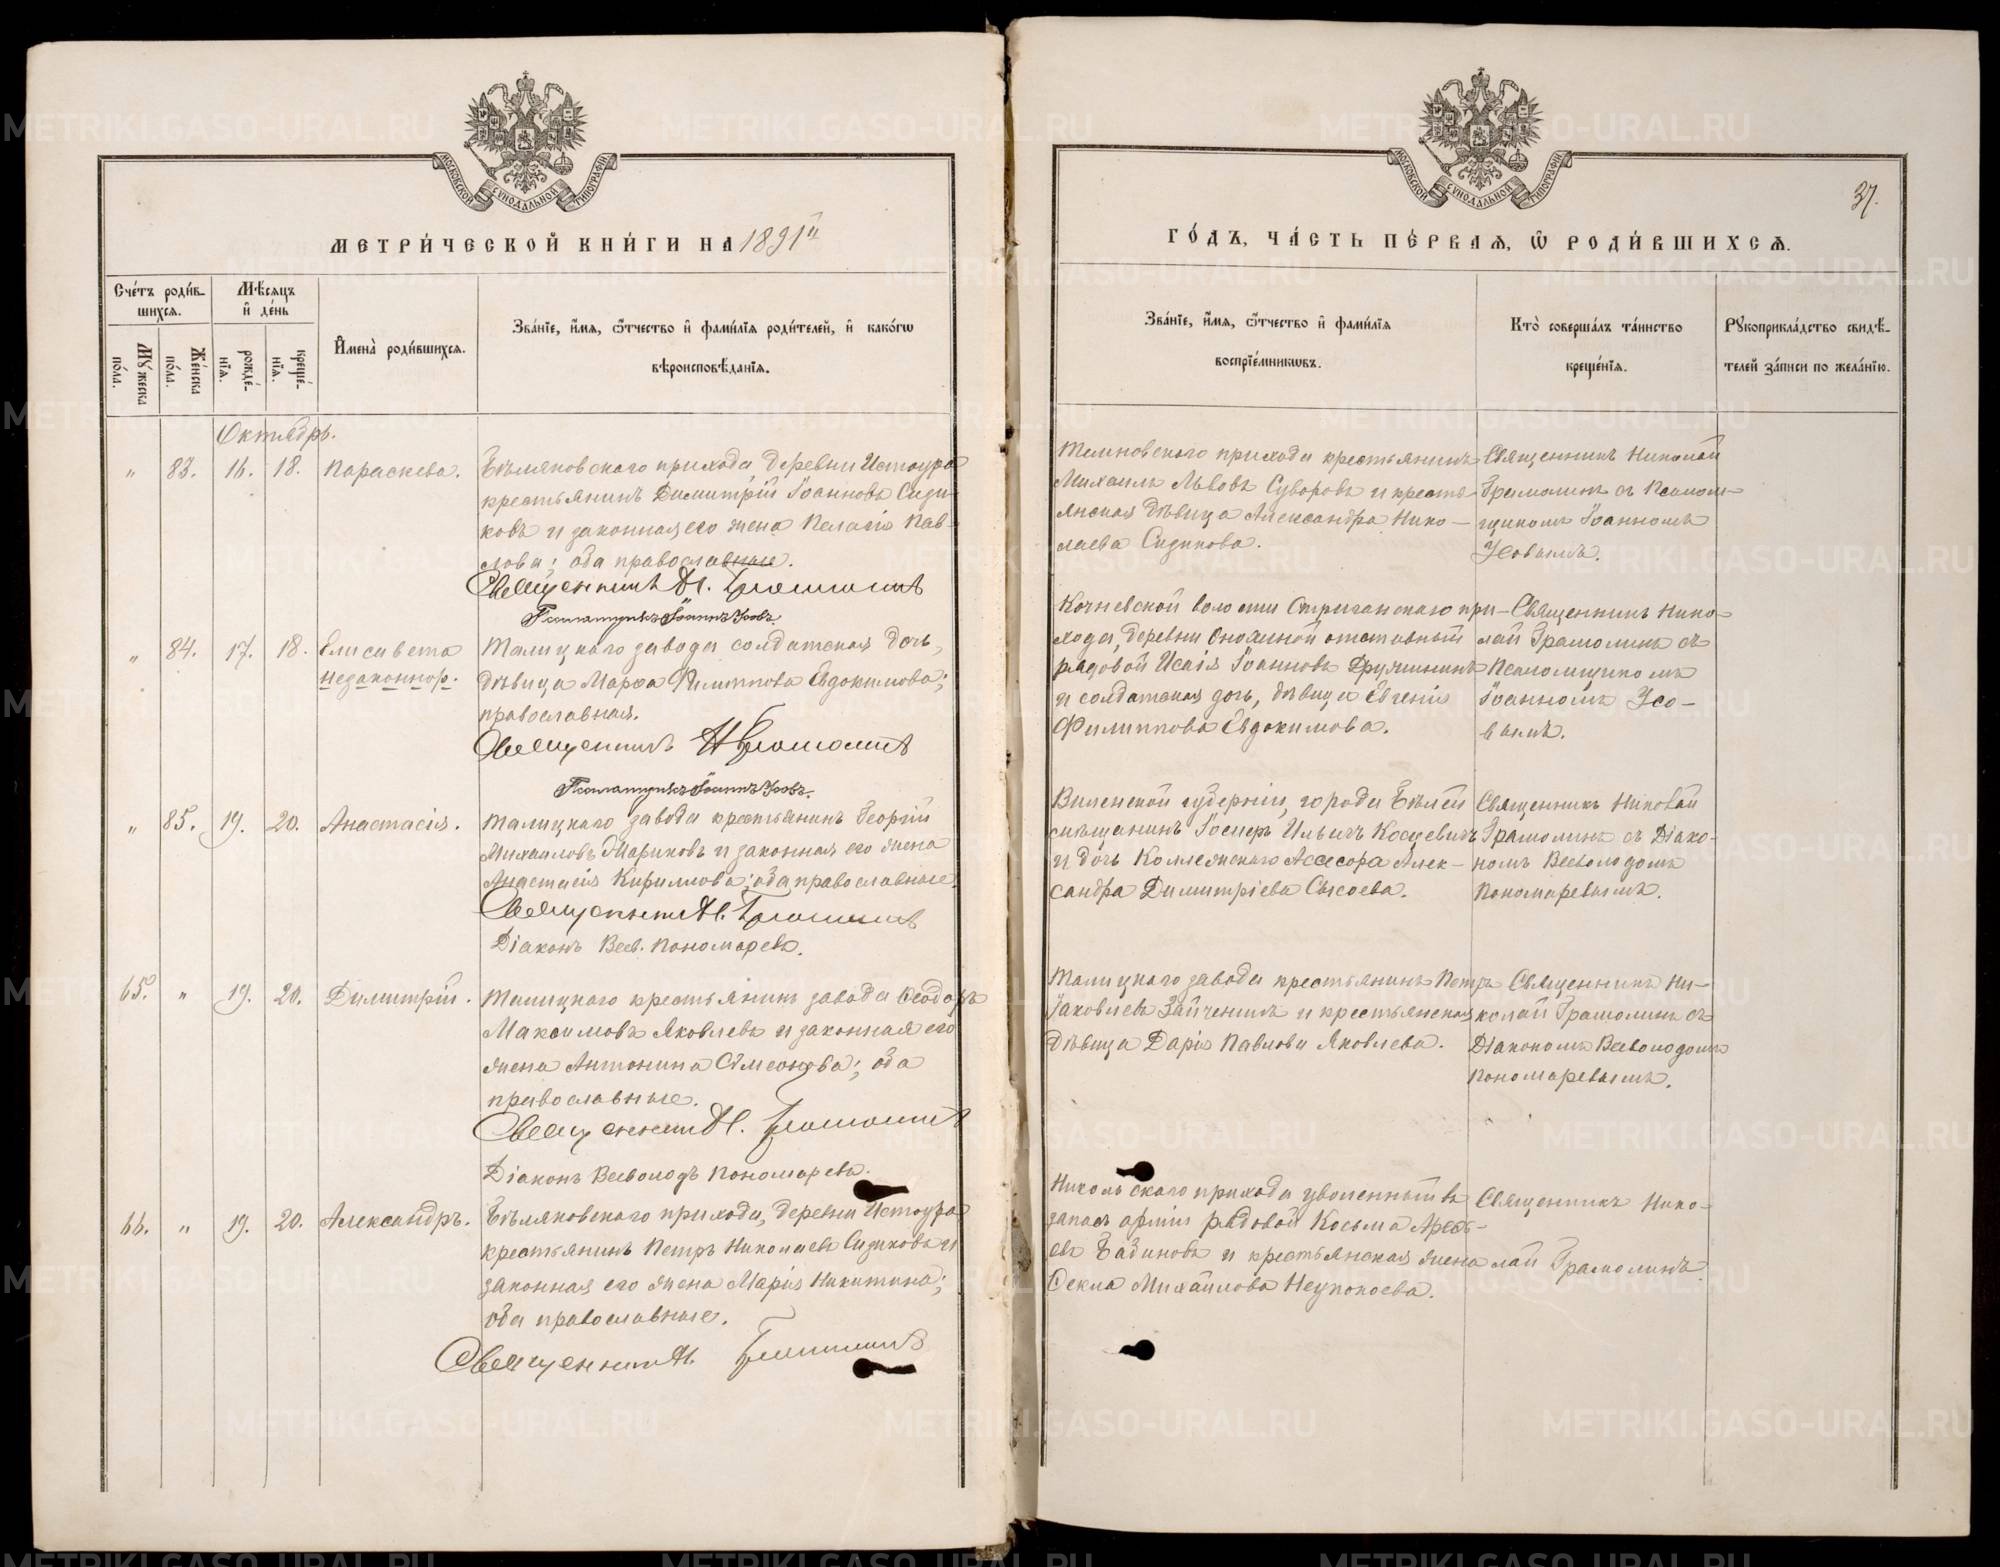 МОСКОВСКОЙ СѴНОДАЛЬНОЙ ТИПОГРАФІИ
МЕТРИ́ЧЕСКОЙ КНИ́ГИ НА 1891й
Сче́тъ роди́в-
шихсѧ.
Мѣсѧцъ
и҆ де́нь
Му́жеска
по́ла.
Же́нска
по́ла.
рожде́-
нїѧ.
креще́-
нїѧ.
И҆мена̀ роди́вшихсѧ.
Зва́нїе, и҆́мѧ, ѻ҆́тчество и҆ фами́лїѧ роди́телей, и҆ како́гѡ
вѣроисповѣ́данїѧ.
Октябрь.
" 83. 16. 18. Параскева.
Бѣляковского прихода деревни Истоура
крестьянинъ Димитрій Іоанновъ Сизи-
ковъ и законная его жена Пелагія Пав-
лова; оба православные.
Священникъ Н. Грамолинъ
Псаломщикъ Іоаннъ Усовъ.
" 84. 17. 18. Елисавета
незаконнор.
Талицкаго завода солдатская дочь,
дѣвица Марѳа Филиппова Евдокимова;
православная.
Священникъ Н Грамолинъ
Псаломщикъ Іоаннъ Усовъ.
" 85. 19. 20. Анастасія.
Талицкаго завода крестьянинъ Георгій
Михаиловъ Мариковъ и законная его жена
Анастасія Кириллова; оба православные.
Священникъ Н. Грамолинъ
Діаконъ Всев. Пономаревъ.
65. " 19. 20. Димитрій.
Талицкаго крестьянинъ завода Ѳеодоръ
Максимовъ Яковлевъ и законная его
жена Антонина Симеонова; оба
православные.
Священникъ Н. Грамолинъ
Діаконъ Всеволодъ Пономаревъ.
66. " 19. 20. Александръ.
Бѣляковского прихода, деревни Истоура
крестьянинъ Петръ Николаевъ Сизиковъ и
законная его жена Марія Никитина;
оба православные.
Священникъ Н. Грамолинъ
МОСКОВСКОЙ СѴНОДАЛЬНОЙ ТИПОГРАФІИ
37.
ГО́ДЪ, ЧА́СТЬ ПЕ́РВАѦ, Ѡ҆ РОДИ́ВШИХСѦ.
Зва́нїе, и҆́мѧ, ѻ҆́тчество и҆ фами́лїѧ
воспрїе́мникѡвъ.
Кто̀ соверша́лъ та́инство
креще́нїѧ.
Рꙋкоприкла́дство свидѣ́-
телей за́писи по жела́нїю.
Темновского прихода крестьянинъ
Михаилъ Львовъ Суворовъ и кресть-
янская дѣвица Александра Нико-
лаева Сизикова.
Священникъ Николай
Грамолинъ съ Псалом-
щикомъ Іоанномъ
Усовымъ.
Кочневской волости Стриганского при-
хода, деревни Онохиной отставный
рядовой Исаія Іоанновъ Дружининъ
и солдатская дочь, дѣвица Евгенія
Филиппова Евдокимова.
Священникъ Нико-
лай Грамолинъ съ
Псаломщикомъ
Іоанномъ Усо-
вымъ.
Виленской губерніи, города Вилеи
мѣщанинъ Іосифъ Ильичъ Косцевичъ
и дочь Коллежскаго Асессора Алек-
сандра Димитріева Сысоева.
Священникъ Николай
Грамолинъ съ Діако-
номъ Всеволодомъ
Пономаревымъ.
Талицкаго завода крестьянинъ Петръ
Іаковлевъ Зайченинъ и крестьянская
дѣвица Дарія Павлова Яковлева.
Священникъ Ни-
колай Грамолинъ съ
Діакономъ Всеволодомъ
Пономаревымъ.
Никольского прихода уволенный въ
запасъ арміи рядовой Косьма
Бабиновъ и крестьянская жена
Ѳекла Михайлова Неупокоева.
Священникъ Нико-
лай Грамолинъ.
METRIKI.GASO-URAL.RU